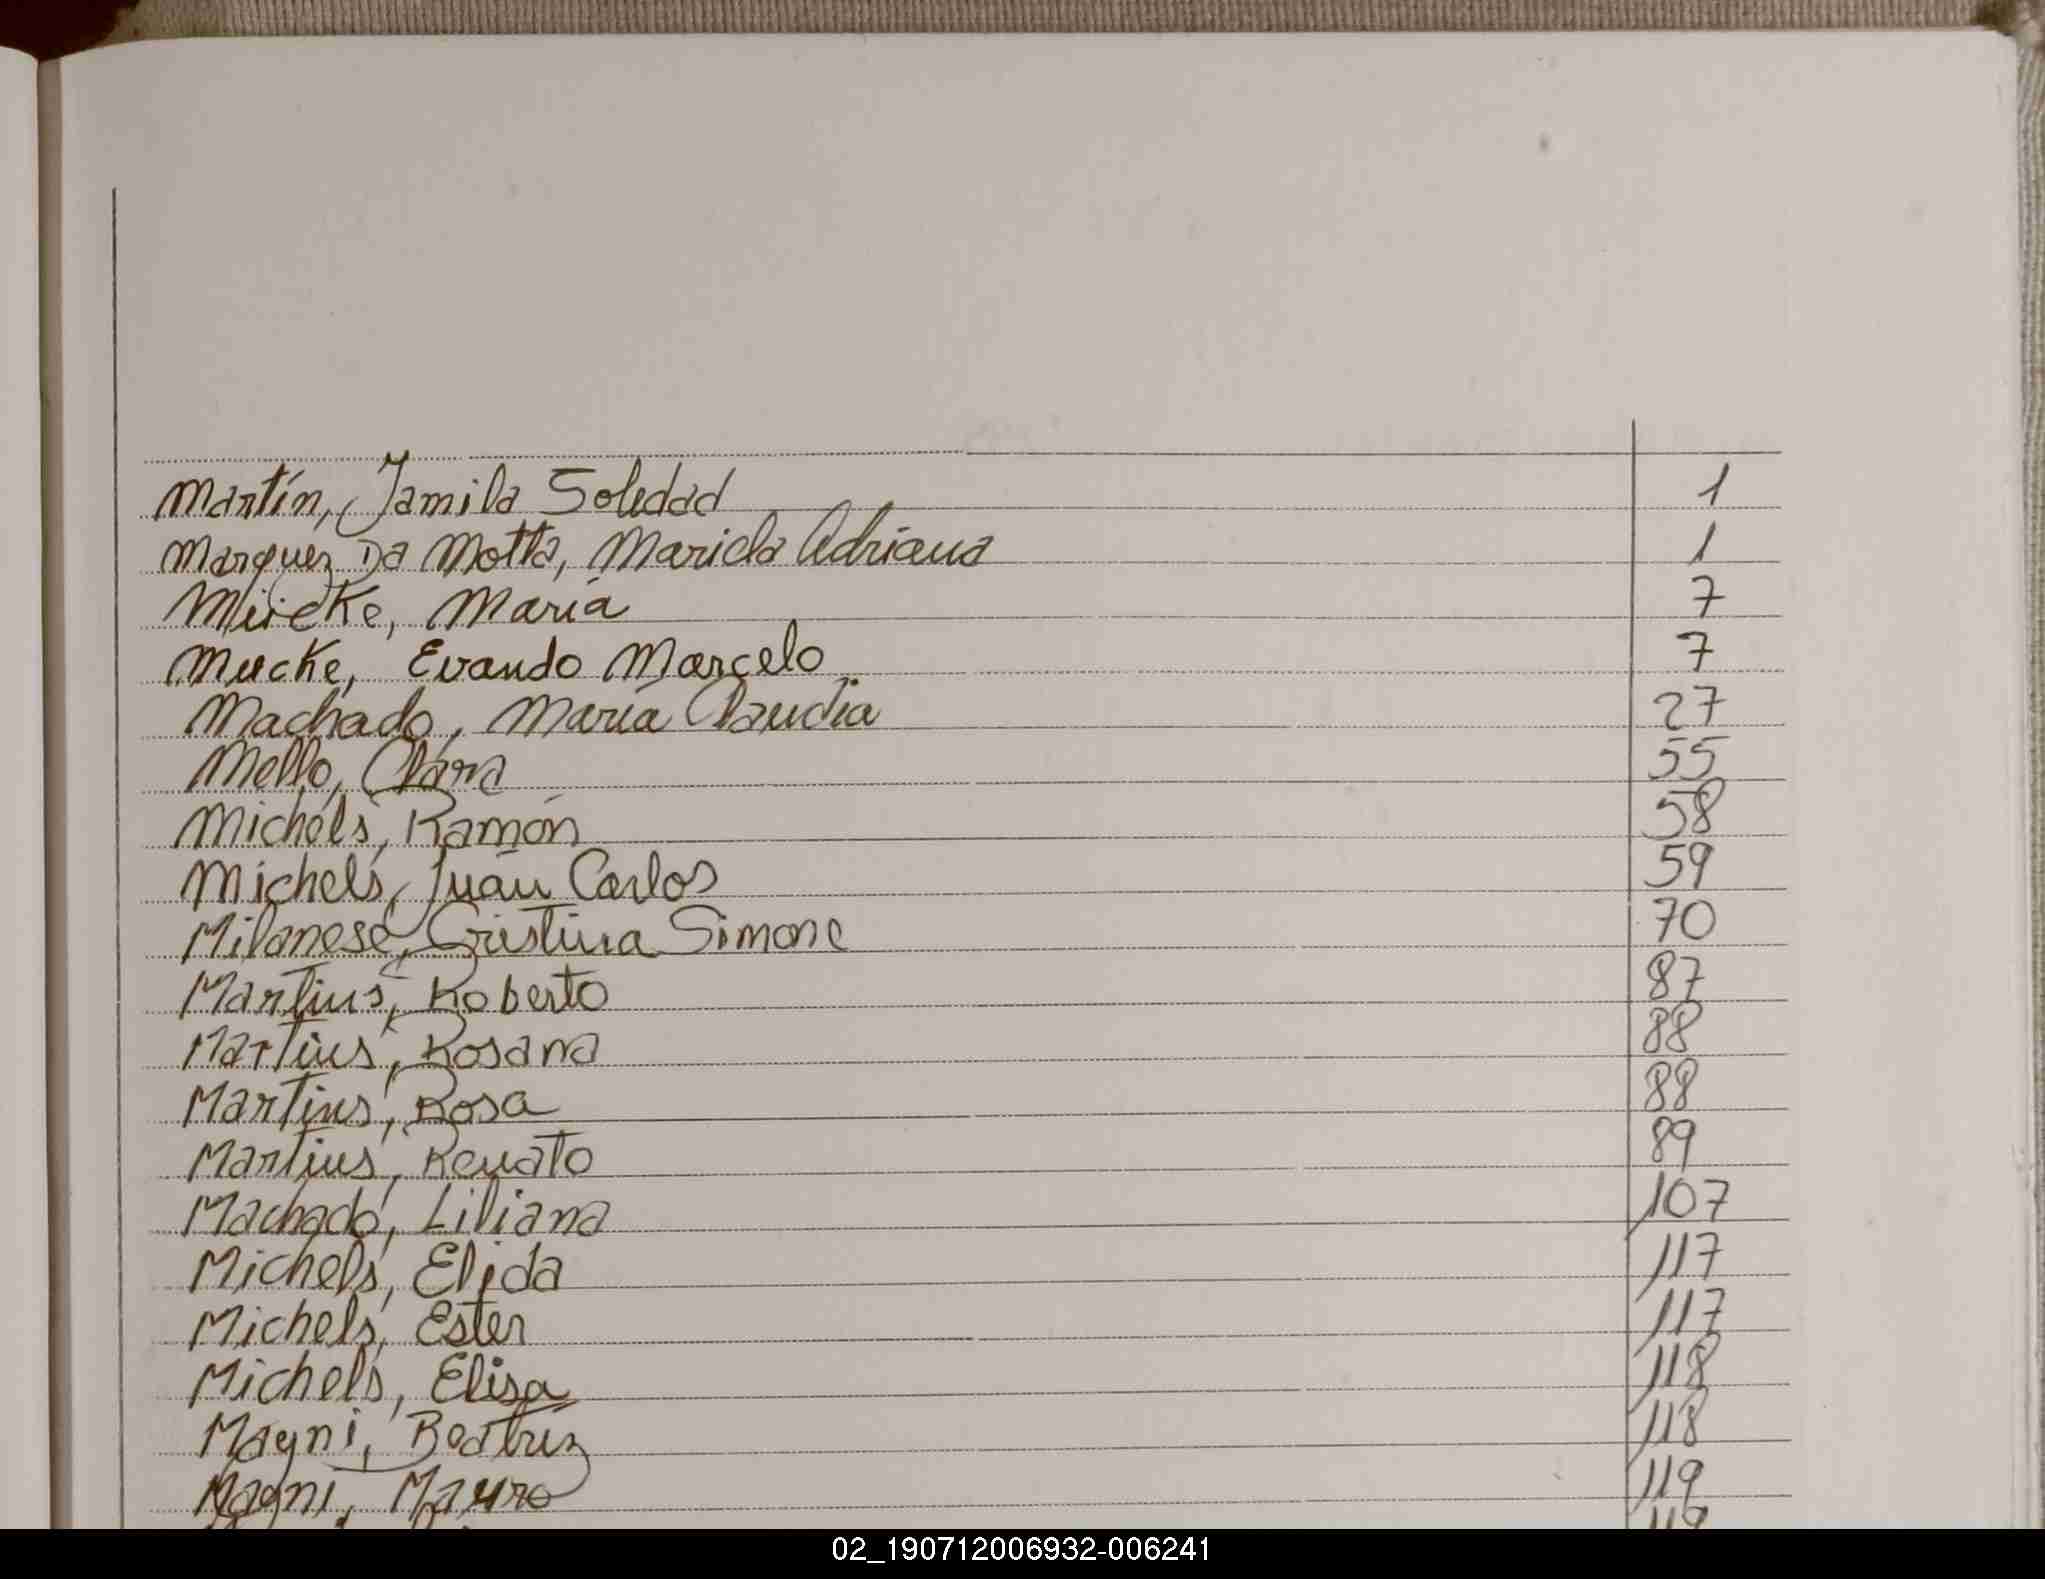 Martín, Jamila Soledad 1
Marquez Da Motta, Mariela Adriana 1
Mücke, María 7
Mucke, Evando Marcelo 7
Machado, María Claudia 27
Mello, Clara 55
Michels, Ramón 58
Michels, Juan Carlos 59
Milanese, Cristina Simone 70
Martins, Roberto 87
Martins, Rosana 88
Martins, Rosa 88
Martins, Renato 89
Machado, Liliana 107
Michels, Elida 117
Michels, Ester 117
Michels, Elisa 118
Magni, Beatriz 118
Magni, Mauro 119
119
02_190712006932-006241